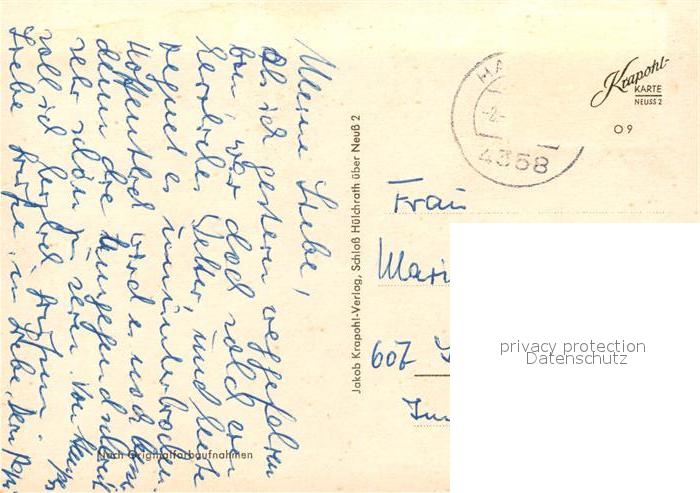 Meine Liebe,
Als ich gestern weggefahren
bin, war doch solch ein
herrliches Wetter und heute
regnet es ununterbrochen.
Hoffentlich wird es noch besser
denn die
sehr schön sein. Von
soll ich herzlich grüßen.
Liebe Grüße, in Liebe, Dein
Nach Originalfarbaufnahmen
Jakob Krapohl-Verlag, Schloß Hülchrath über Neuß 2
4358
Krapohl-
KARTE
NEUSS 2
O 9
Frau
607
privacy protection
Datenschutz